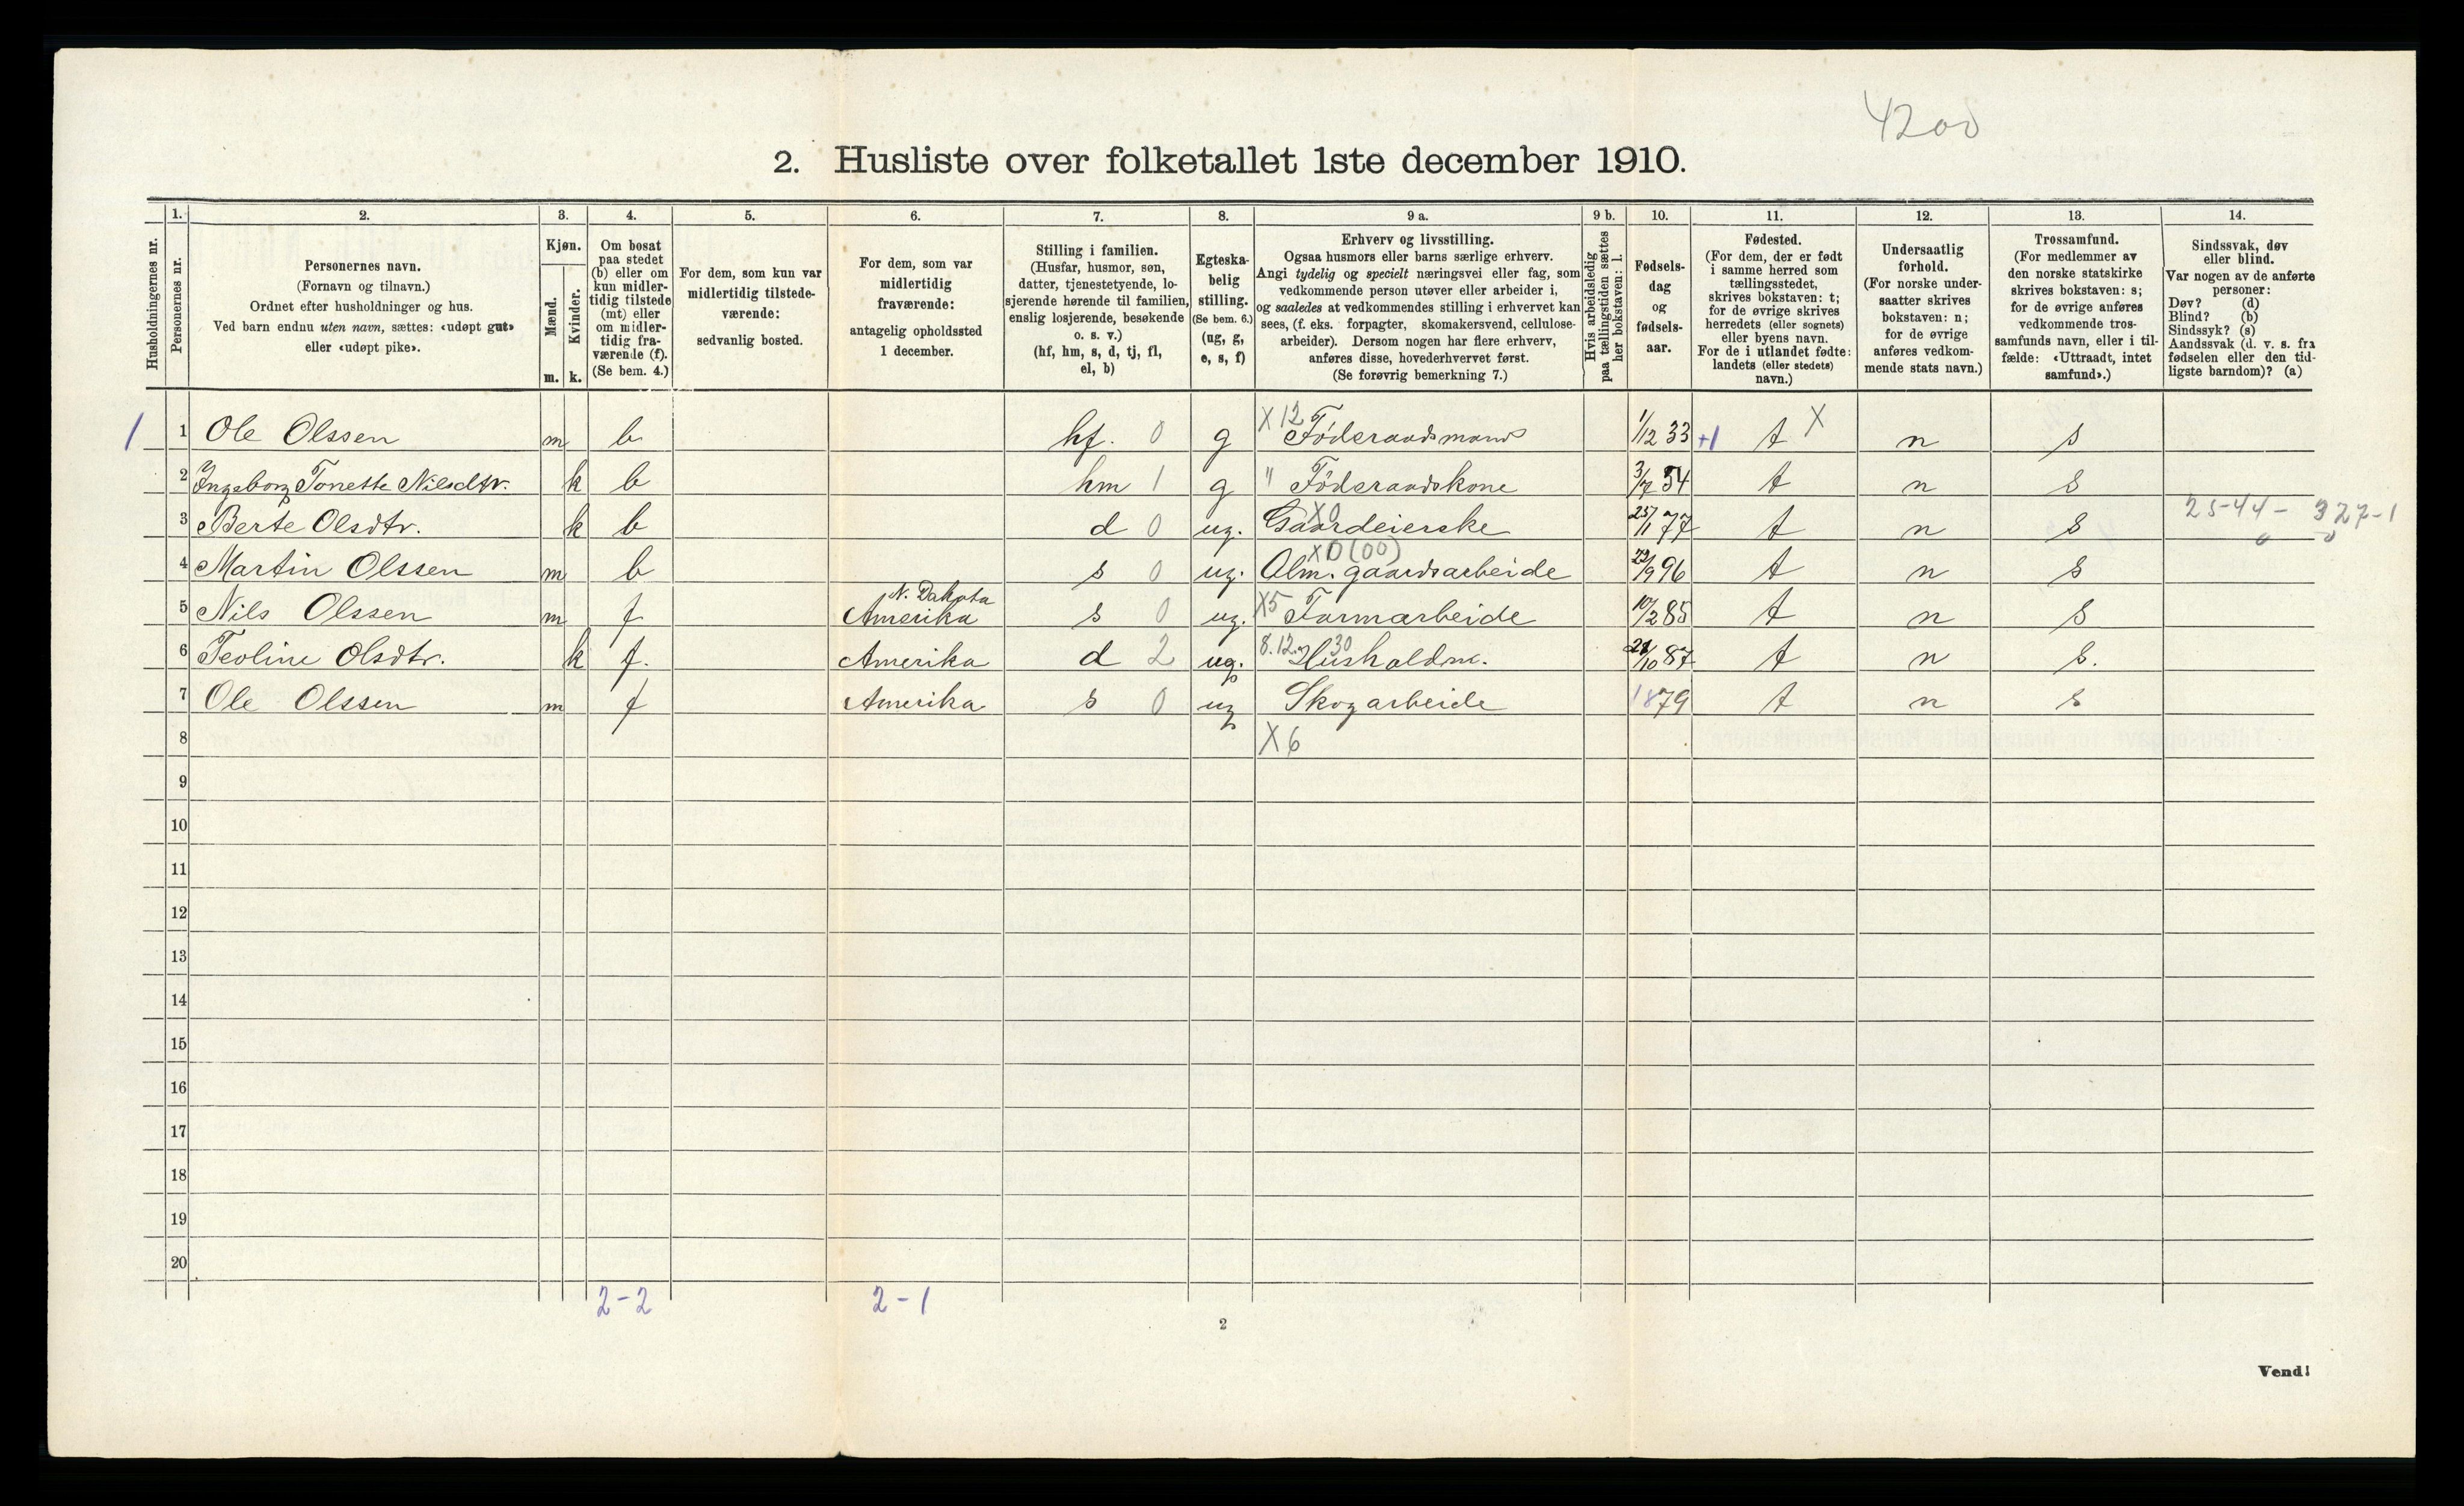 4200
2. Husliste over folketallet 1ste december 1910.
Husholdningernes nr.
1.
Personernes nr.
2.
Personernes navn.
(Fornavn og tilnavn.)
Ordnet efter husholdninger og hus.
Ved barn endnu uten navn, sættes: «udøpt gut»
eller «udøpt pike».
3.
Kjøn.
Mænd.
m.
Kvinder.
k.
4.
Om bosat
paa stedet
(b) eller om
kun midler-
tidig tilstede
(mt) eller
om midler-
tidig fra-
værende (f).
(Se bem. 4.)
5.
For dem, som kun var
midlertidig tilstede-
værende:
sedvanlig bosted.
6.
For dem, som var
midlertidig
fraværende:
antagelig opholdssted
1 december.
7.
Stilling i familien.
(Husfar, husmor, søn,
datter, tjenestetyende, lo-
sjerende hørende til familien,
enslig losjerende, besøkende
o. s. v.)
(hf, hm, s, d, tj, fl,
el, b)
8.
Egteska-
belig
stilling.
(Se bem. 6.)
(ug, g,
e, s, f)
9 a.
Erhverv og livsstilling.
Ogsaa husmors eller barns særlige erhverv.
Angi tydelig og specielt næringsvei eller fag, som
vedkommende person utøver eller arbeider i,
og saaledes at vedkommendes stilling i erhvervet kan
sees, (f. eks. forpagter, skomakersvend, cellulose-
arbeider). Dersom nogen har flere erhverv,
anføres disse, hovederhvervet først.
(Se forøvrig bemerkning 7.)
9 b.
Hvis arbeidsledig
paa tællingstiden sættes
her bokstaven: l.
10.
Fødsels-
dag
og
fødsels-
aar.
11.
Fødested.
(For dem, der er født
i samme herred som
tællingsstedet,
skrives bokstaven: t;
for de øvrige skrives
herredets (eller sognets)
eller byens navn.
For de i utlandet fødte:
landets (eller stedets)
navn.)
12.
Undersaatlig
forhold.
(For norske under-
saatter skrives
bokstaven: n;
for de øvrige
anføres vedkom-
mende stats navn.)
13.
Trossamfund.
(For medlemmer av
den norske statskirke
skrives bokstaven: s;
for de øvrige anføres
vedkommende tros-
samfunds navn, eller i til-
fælde: «Uttraadt, intet
samfund».)
14.
Sindssvak, døv
eller blind.
Var nogen av de anførte
personer:
Døv? (d)
Blind? (b)
Sindssyk? (s)
Aandssvak (d. v. s. fra
fødselen eller den tid-
ligste barndom)? (a)
1 1 Ole Olssen m b hf. 0 g X12 Føderaadsmand 1/12 33 +1 t X n s
2 Ingeborg Tonette Nilsdtr. k b hm 1 g " Føderaadskone 3/7 54 t n s
3 Berte Olsdtr. k b d 0 ug. X0 Gaardeierske 25/1 77 t n s 25-44- 327-1
4 Martin Olssen m b s 0 ug. X0(00) Alm. gaardsarbeide 22/9 96 t n s
5 Nils Olssen m f N. Dakota Amerika s 0 ug. X5 Farmarbeide 10/2 85 t n s
6 Teoline Olsdtr. k f. Amerika d 2 ug. 8.12. 30 Husholdn. 21/10 87 t n s.
7 Ole Olssen m f Amerika s 0 ug Skogarbeide 1879 t n s
8 X6
9
10
11
12
13
14
15
16
17
18
19
20
2-2 2-1
2
Vend!